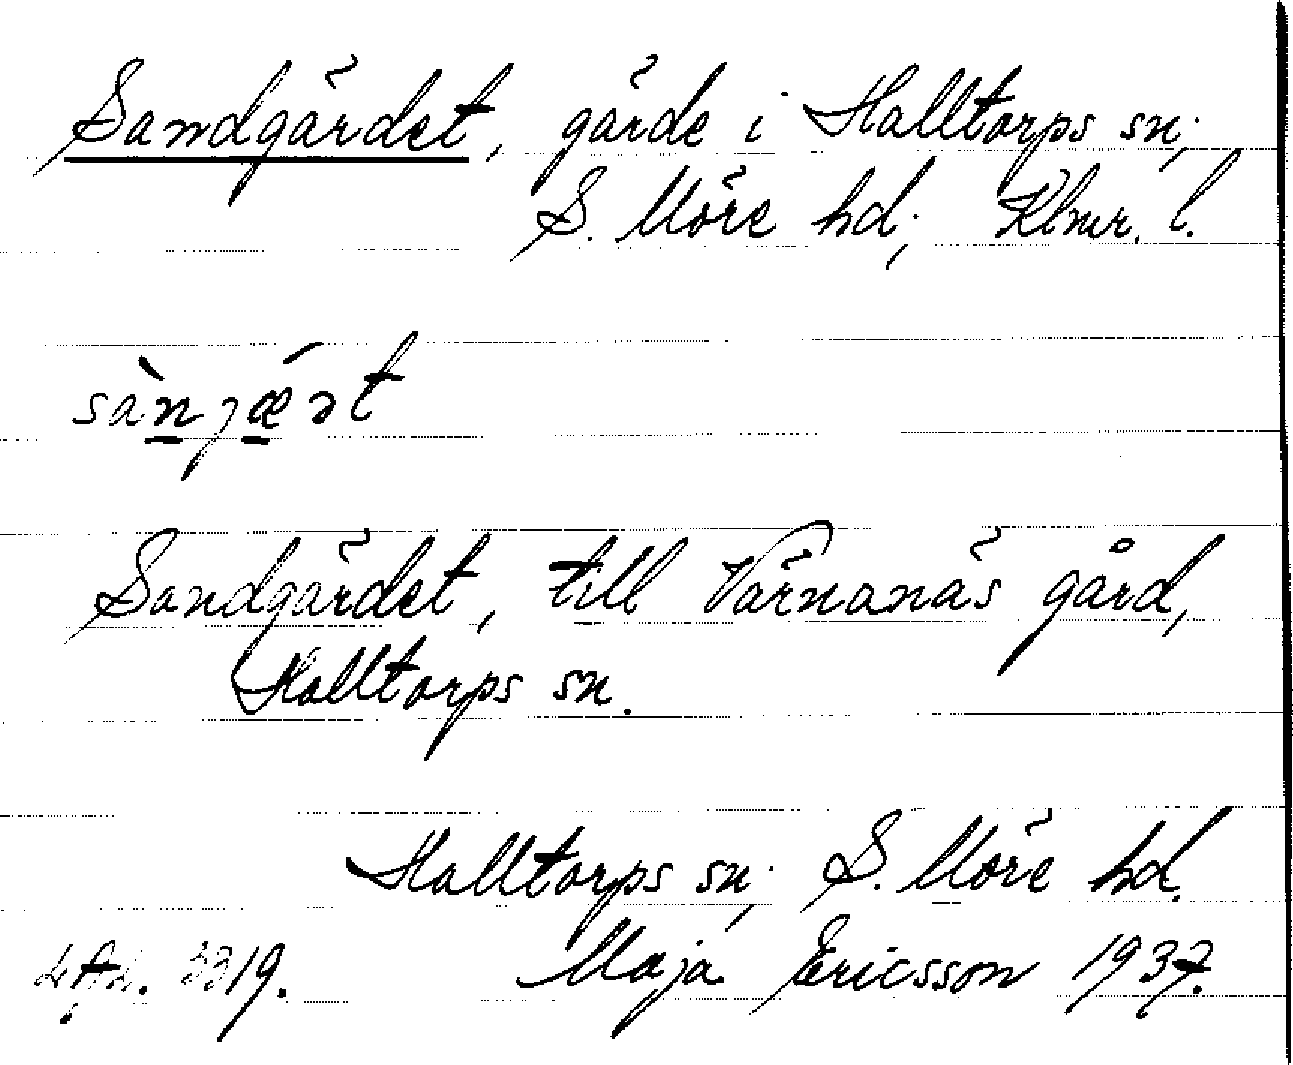 Sandgärdet, gärde i Halltorps sn;
S. Möre hd; Klmr. l.
sànjǽrt
Sandgärdet, till Värnanäs gård,
Halltorps sn.
Halltorps sn; S. Möre hd.
3319. Maja Ericsson 1937.